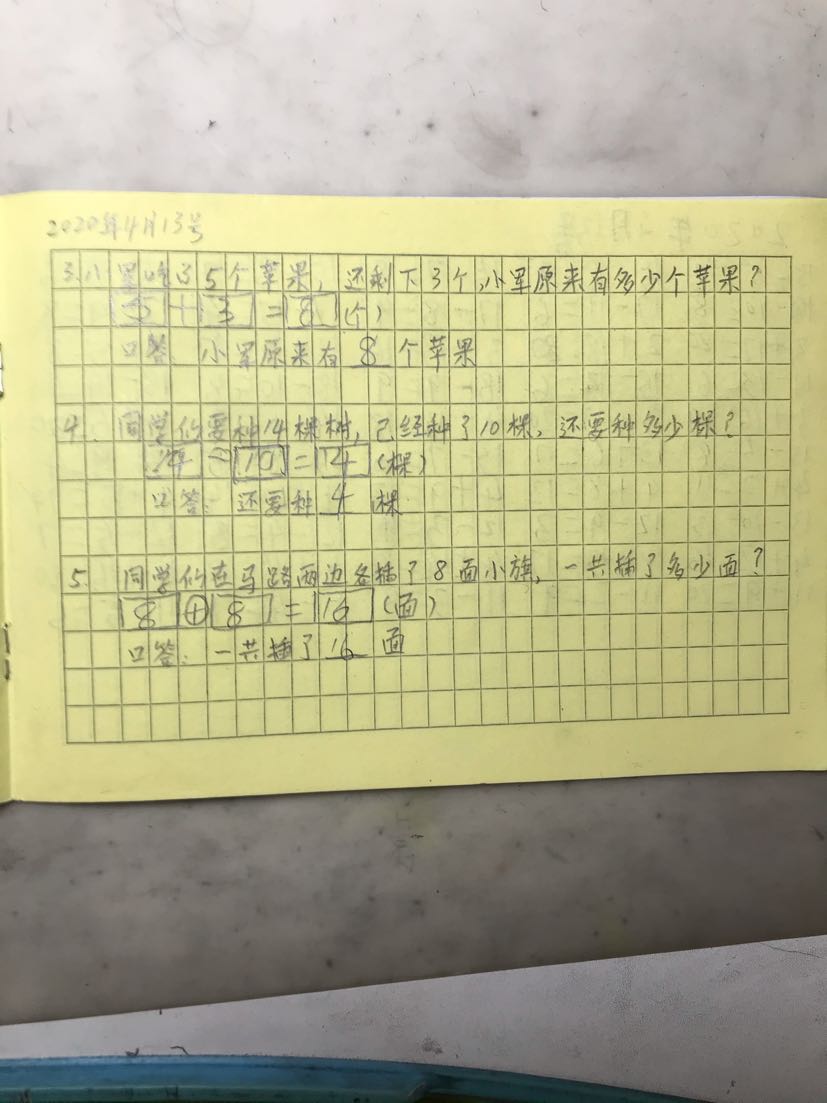 2020年4月13号
3.小军吃了5个苹果，还剩下3个，小军原来有多少个苹果？
5+3=8(个)
口答：小军原来有8个苹果
4. 同学们要种14棵树，已经种了10棵，还要种多少棵？
14-10=4(棵)
口答：还要种4棵
5. 同学们在马路两边各插了8面小旗，一共插了多少面？
8+8=16(面)
口答：一共插了16面